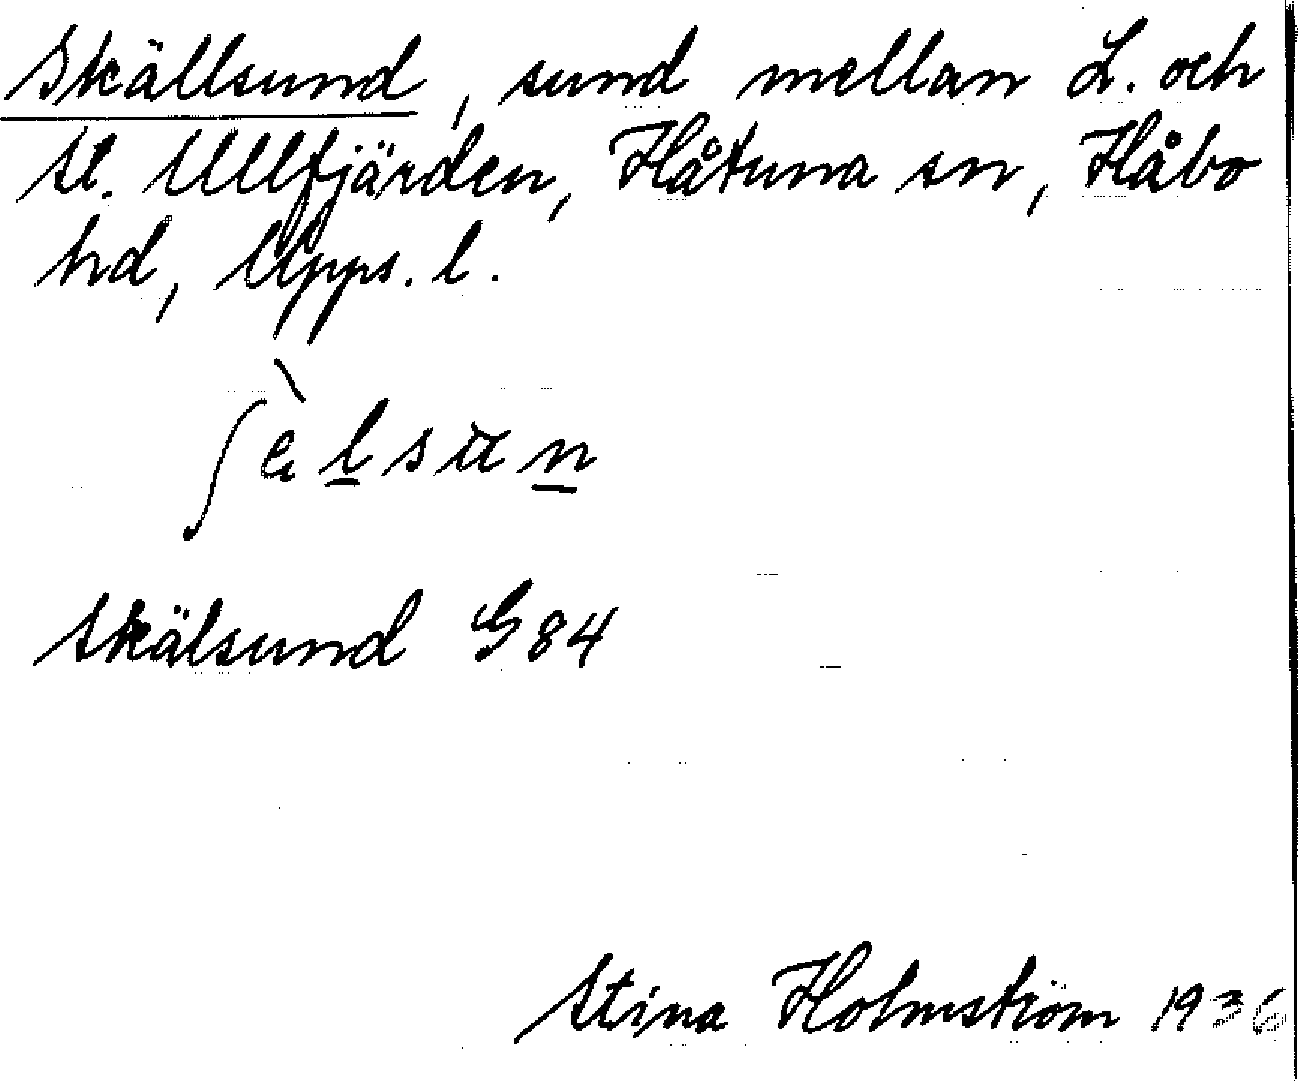 Skällsund, sund mellan L. och
St. Ullfjärden, Håtuna sn, Håbo
hd, Upps. l.
Skälsund G 84
Stina Holmström 1936